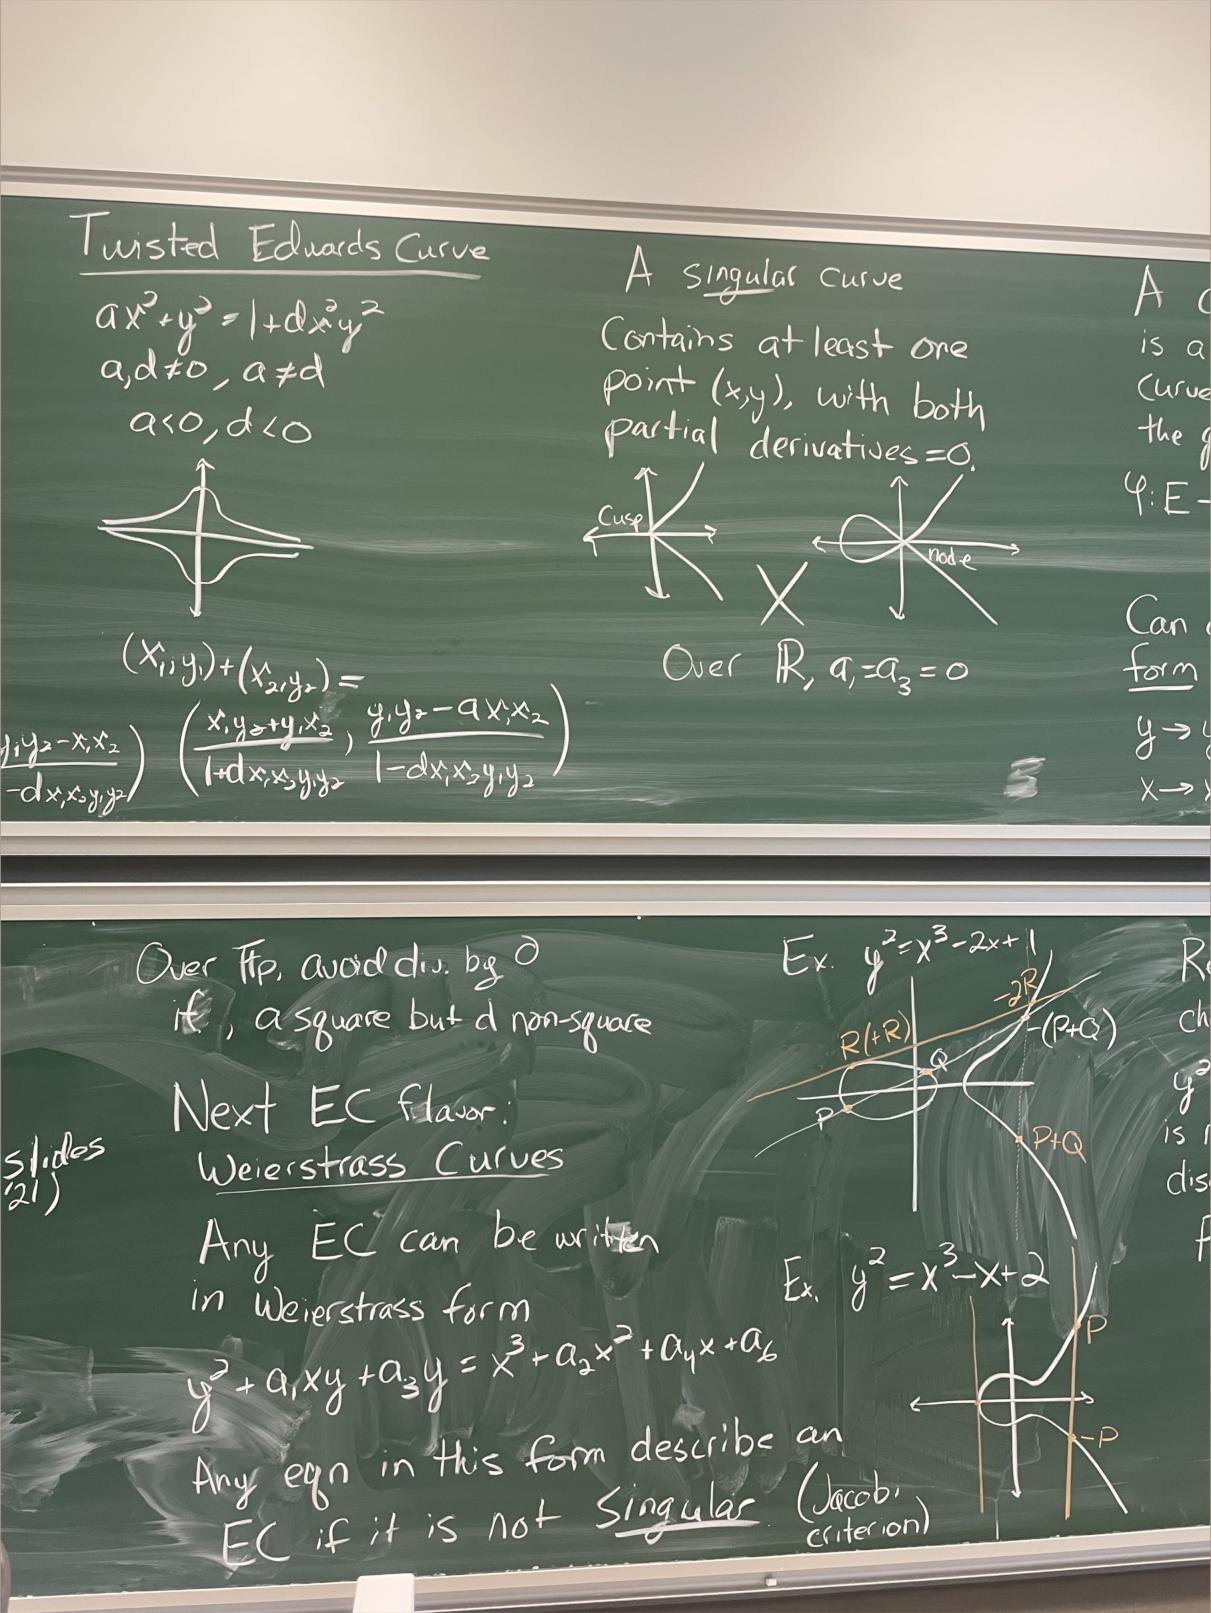 Twisted Edwards Curve
ax²+y²=1+dx²y²
a,d≠0, a≠d
a<0, d<0
(x₁,y₁)+(x₂,y₂)=
(x₁y₂+y₁x₂/1+dx₁x₂y₁y₂, y₁y₂-ax₁x₂/1-dx₁x₂y₁y₂)
y₁y₂-x₁x₂/-dx₁x₂y₁y₂)
A singular curve
Contains at least one
point (x,y), with both
partial derivatives=0.
Cusp
node
X
Over ℝ, a₁=a₃=0
A
is a
curve
the
φ:E
Can
form
y→
x→
Over 𝔽p, avoid div. by 0
if, a square but d non-square
Next EC flavor:
Weierstrass Curves
slides
'21)
Any EC can be written
in Weierstrass form
y²+a₁xy+a₃y=x³+a₂x²+a₄x+a₆
Any eqn in this form describe an
EC if it is not Singular (Jacobi
criterion)
Ex. y²=x³-2x+1
-2R
R(+R)
-(P+Q)
Q
P
P+Q
Ex. y²=x³-x+2
P
-P
R
ch
y²
is
dis